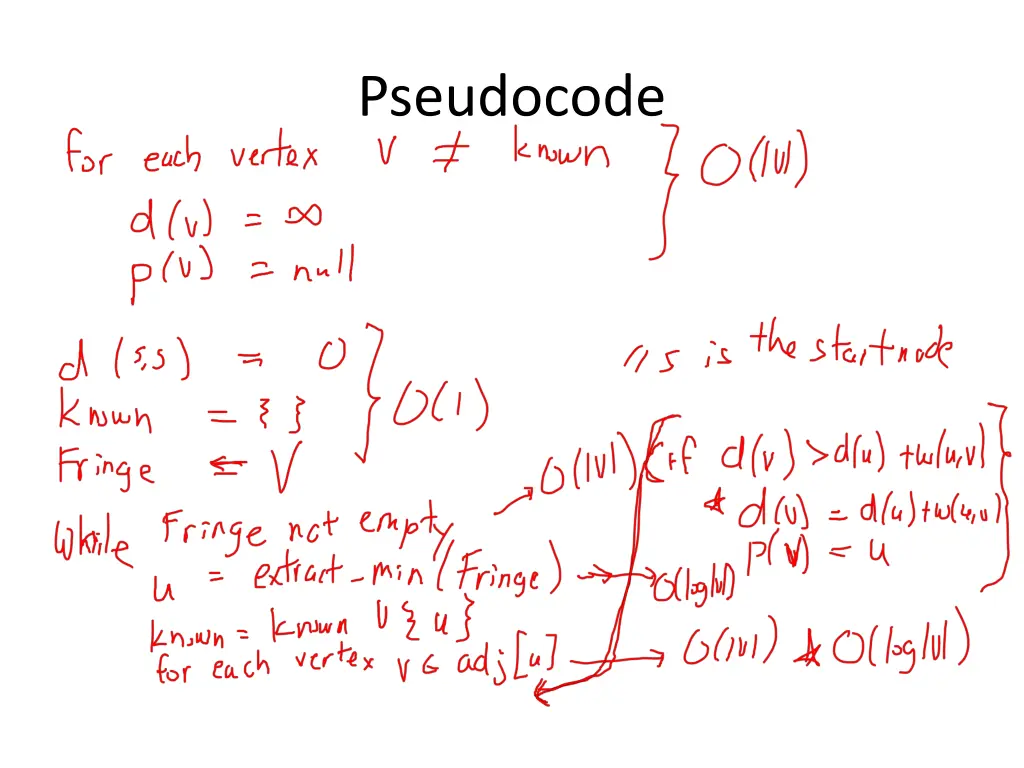 Pseudocode
for each vertex v ≠ known } O(|V|)
d(v) = ∞
p(v) = null
d(s,s) = 0 } O(1)
// s is the start node
known = { }
Fringe ← V
While Fringe not empty → O(|V|)
u = extract_min(Fringe) → O(log|V|)
known = known ∪ {u}
for each vertex v ∈ adj[u] → O(|V|) * O(log|V|)
(if d(v) > d(u) + w(u,v)
* d(v) = d(u) + w(u,v)
p(v) = u